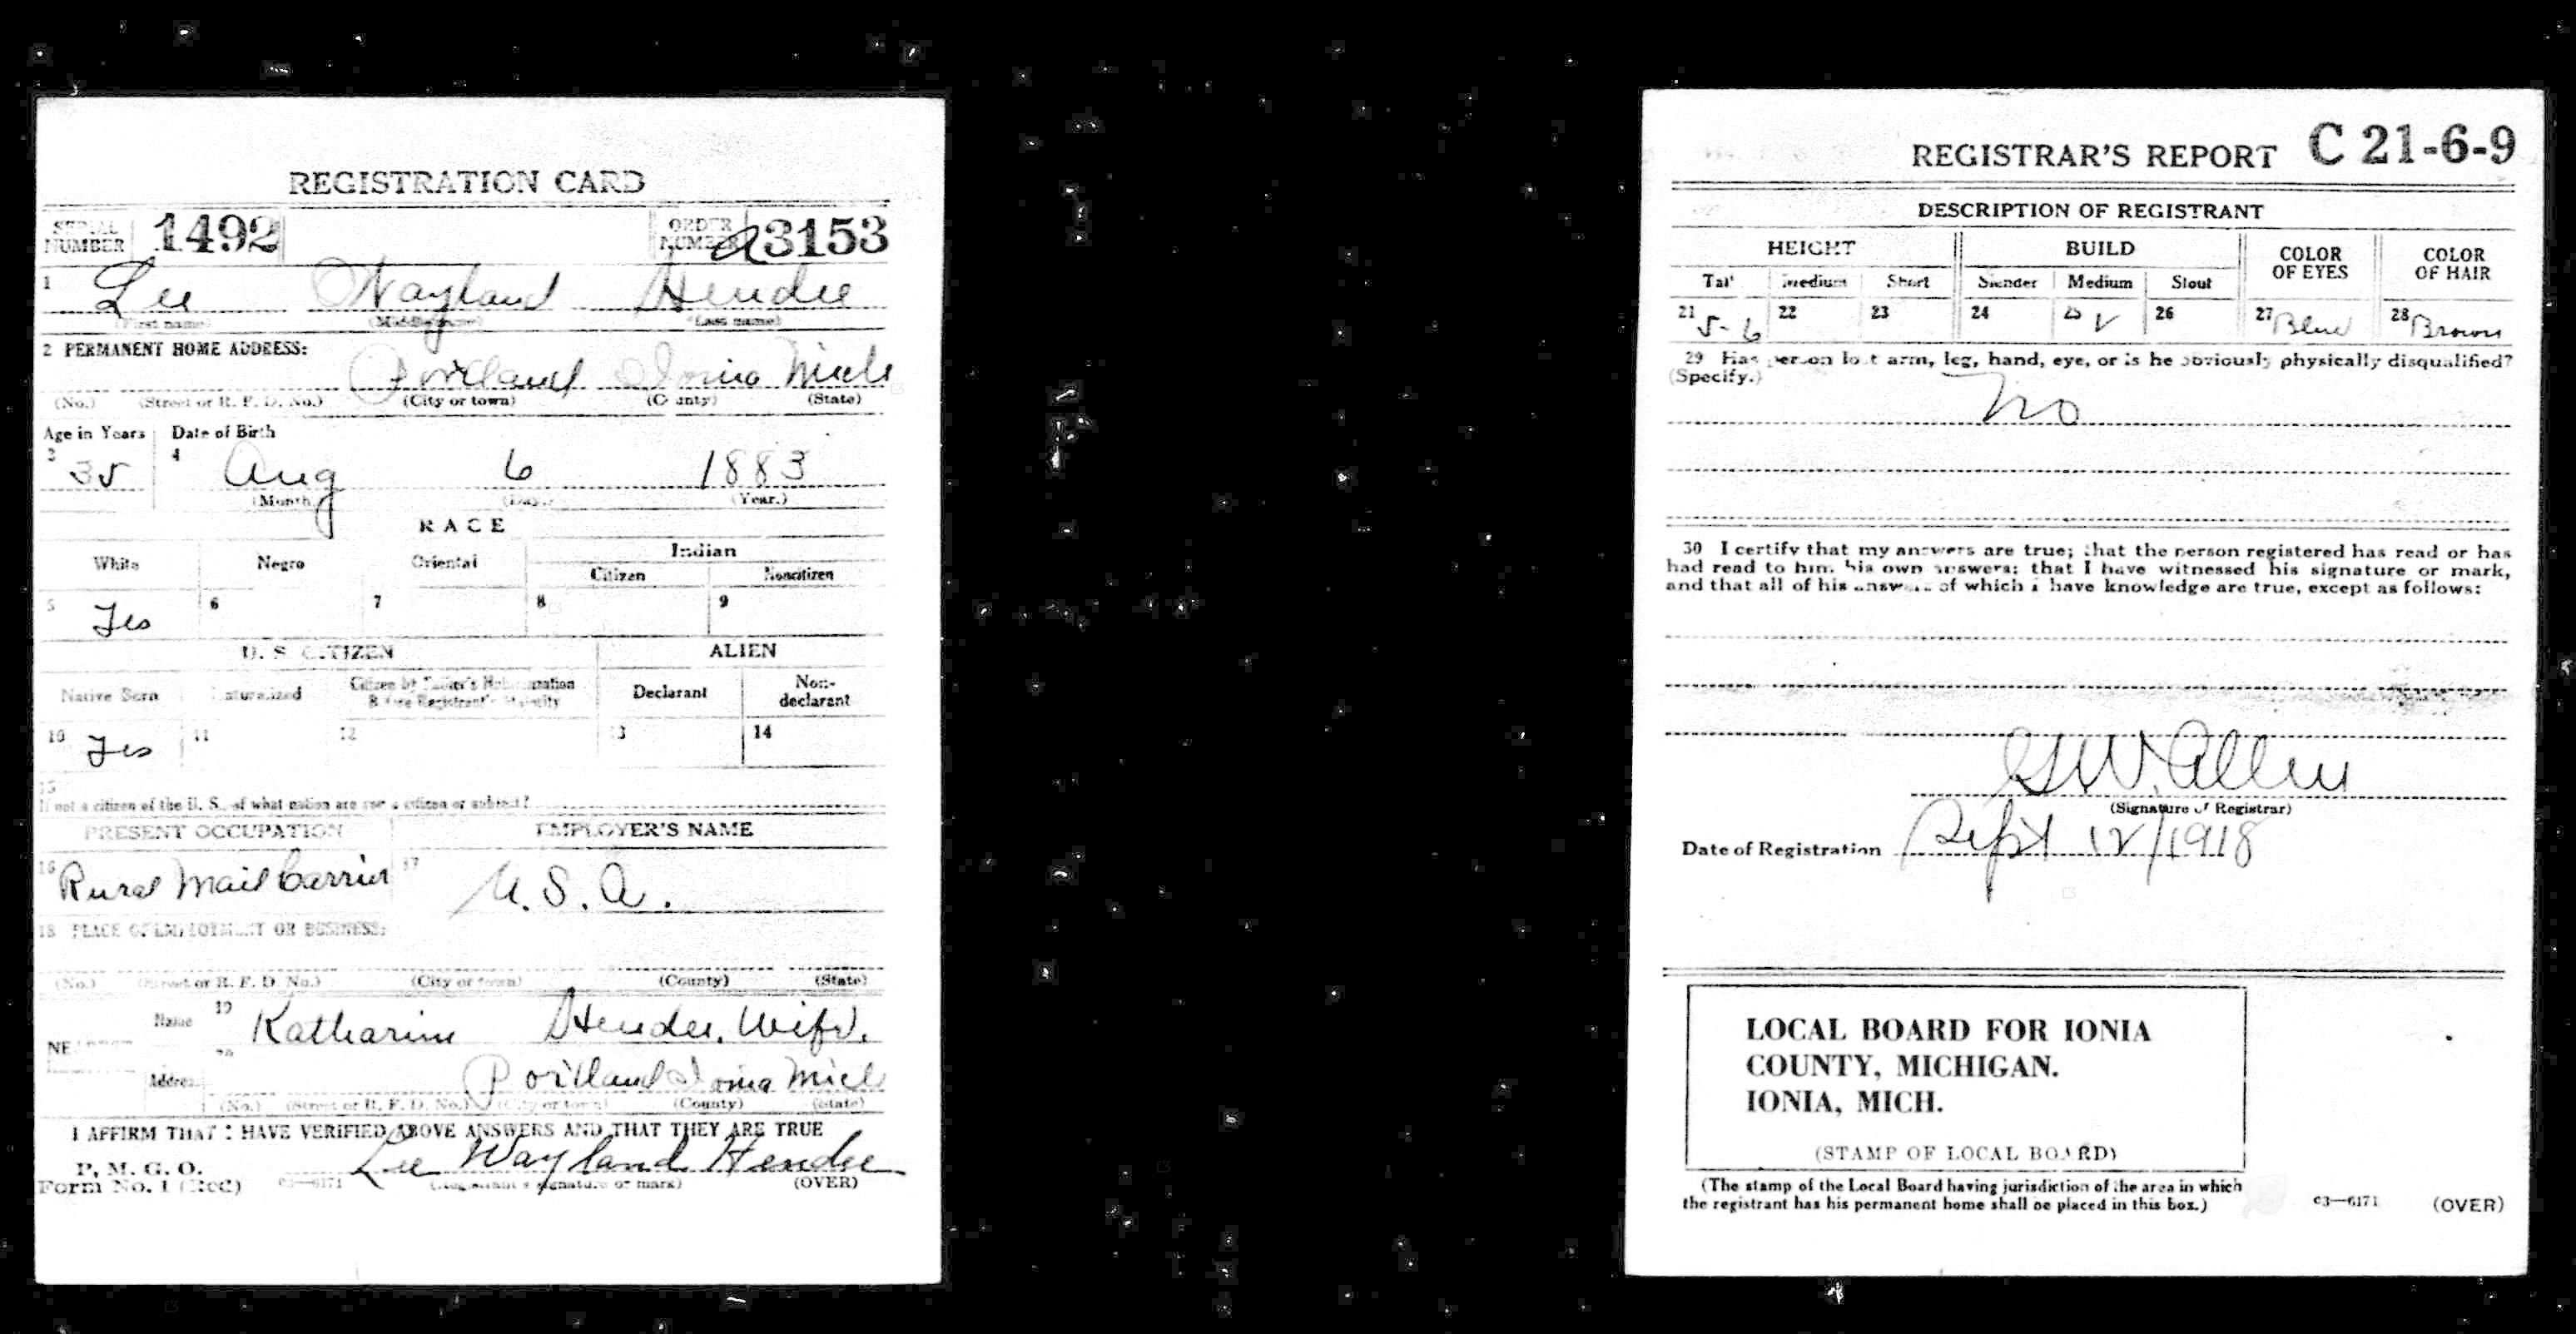 REGISTRATION CARD
SERIAL NUMBER 1492 ORDER NUMBER a3153
1 Lee Wayland Hendee
(First name) (Middle name) (Last name)
2 PERMANENT HOME ADDRESS:
Portland Ionia Mich
(No.) (Street or R. F. D. No.) (City or town) (County) (State)
Age in Years Date of Birth
3 35 4 Aug 6 1883
(Month) (Day.) (Year.)
RACE
White Negro Oriental Indian
Citizen Noncitizen
5 Yes 6 7 8 9
U. S. CITIZEN ALIEN
Native Born Naturalized Citizen by Father's Naturalization Before Registrant's Majority Declarant Non-declarant
10 Yes 11 12 13 14
15
If not a citizen of the U. S., of what nation are you a citizen or subject?
PRESENT OCCUPATION EMPLOYER'S NAME
16 Rural Mail Carrier 17 U.S.A.
18 PLACE OF EMPLOYMENT OR BUSINESS:
(No.) (Street or R. F. D. No.) (City or town) (County) (State)
Name 19 Katharine Hendee, Wife.
20
Address Portland Ionia Mich
(No.) (Street or R. F. D. No.) (City or town) (County) (State)
I AFFIRM THAT I HAVE VERIFIED ABOVE ANSWERS AND THAT THEY ARE TRUE
P. M. G. O.
Form No. 1 (Red) 03—6171 Lee Wayland Hendee
(Registrant's signature or mark) (OVER)
REGISTRAR'S REPORT C 21-6-9
DESCRIPTION OF REGISTRANT
HEIGHT BUILD COLOR OF EYES COLOR OF HAIR
Tall Medium Short Slender Medium Stout
21 5-6 22 23 24 25 V 26 27 Blue 28 Brown
29 Has person lost arm, leg, hand, eye, or is he obviously physically disqualified?
(Specify.)
No
30 I certify that my answers are true; that the person registered has read or has
had read to him his own answers; that I have witnessed his signature or mark,
and that all of his answers of which I have knowledge are true, except as follows:
G.W. Allen
(Signature of Registrar)
Date of Registration Sept 12/1918
LOCAL BOARD FOR IONIA
COUNTY, MICHIGAN.
IONIA, MICH.
(STAMP OF LOCAL BOARD)
(The stamp of the Local Board having jurisdiction of the area in which
the registrant has his permanent home shall be placed in this box.)
03—6171 (OVER)